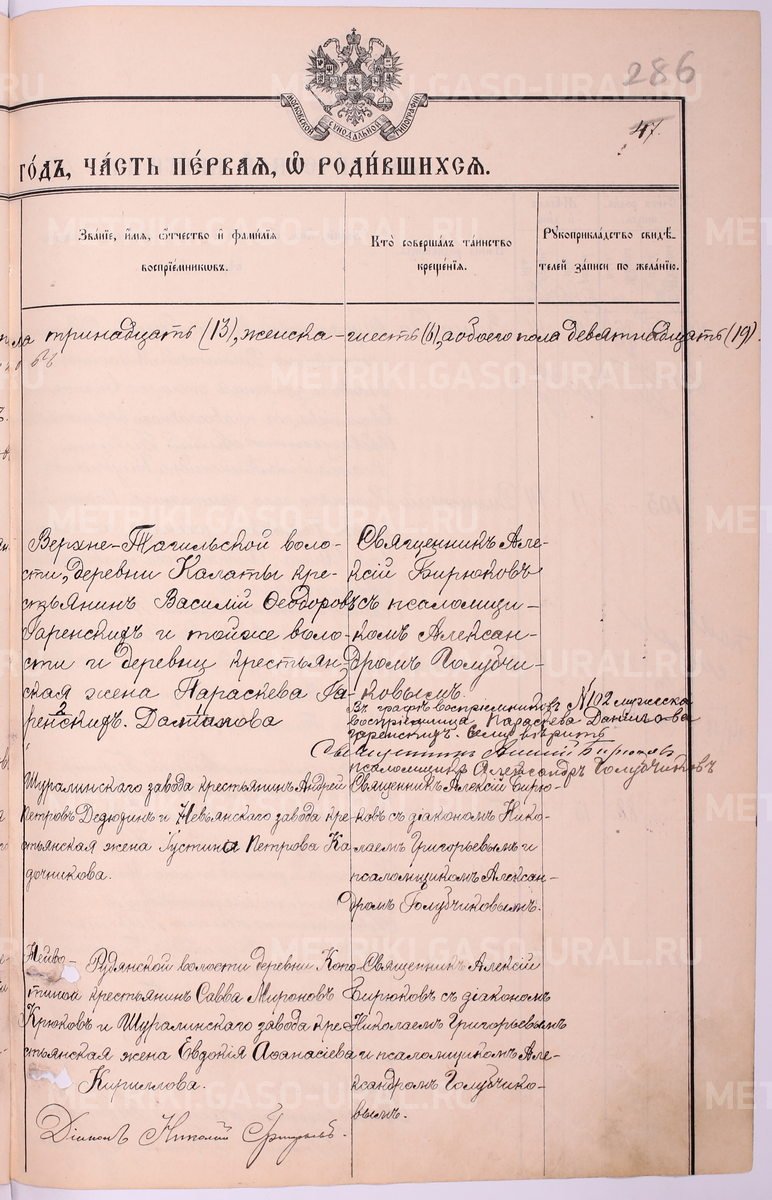 286
47.
МОСКОВСКОЙ СѴНОДАЛЬНОЙ ТИПОГРАФІИ
го́дъ, ча́сть пе́рваѧ, ѡ҆ роди́вшихсѧ.
Зва́нїе, и҆́мѧ, ѻ҆́тчество и҆ фами́лїѧ
воспрїе́мникѡвъ.
Кто̀ соверша́лъ та́инство
креще́нїѧ.
Рꙋкоприкла́дство свидѣ́-
телей за́писи по жела́нїю.
ла тринадцать (13), женска- шесть (6), а обоего пола девятнадцать (19).
Верхне-Тагильской воло-
сти, деревни Калаты кре-
стьянинъ Василій Ѳеодоровъ
Гаренскихъ и тойже воло-
сти и деревни крестьян-
ская жена Параскева Га-
2 1
ренскихъ. Данилова
Священникъ Але-
ксій Бирюковъ
съ псаломщи-
комъ Алексан-
дромъ Голубчи-
ковымъ.
Въ графѣ воспріемниковъ № 102 мужеска
воспріемница Параскева Данилова
Гаренскихъ. Сему вѣрить
Священникъ Алексій Бирюковъ
псаломщикъ Александръ Голубчиковъ
Шуралинского завода крестьянинъ Андрей
Петровъ Дедюхинъ и Невьянского завода кре-
стьянская жена Іустина Петрова Ка-
дочникова.
Священникъ Алексій Бирю-
ковъ съ діакономъ Нико-
лаемъ Григорьевымъ и
псаломщикомъ Алексан-
дромъ Голубчиковымъ.
Нейво-Рудянской волости деревни Копо-
тиной крестьянин Савва Мироновъ
Крюковъ и Шуралинскаго завода кре-
стьянская жена Евдокія Аѳанасіева
Кириллова.
Священникъ Алексій
Бирюковъ съ діакономъ
Николаемъ Григорьевымъ
и псаломщикомъ Але-
ксандромъ Голубчико-
вымъ.
Діаконъ Николай Григорьевъ.
METRIKI.GASO-URAL.RU